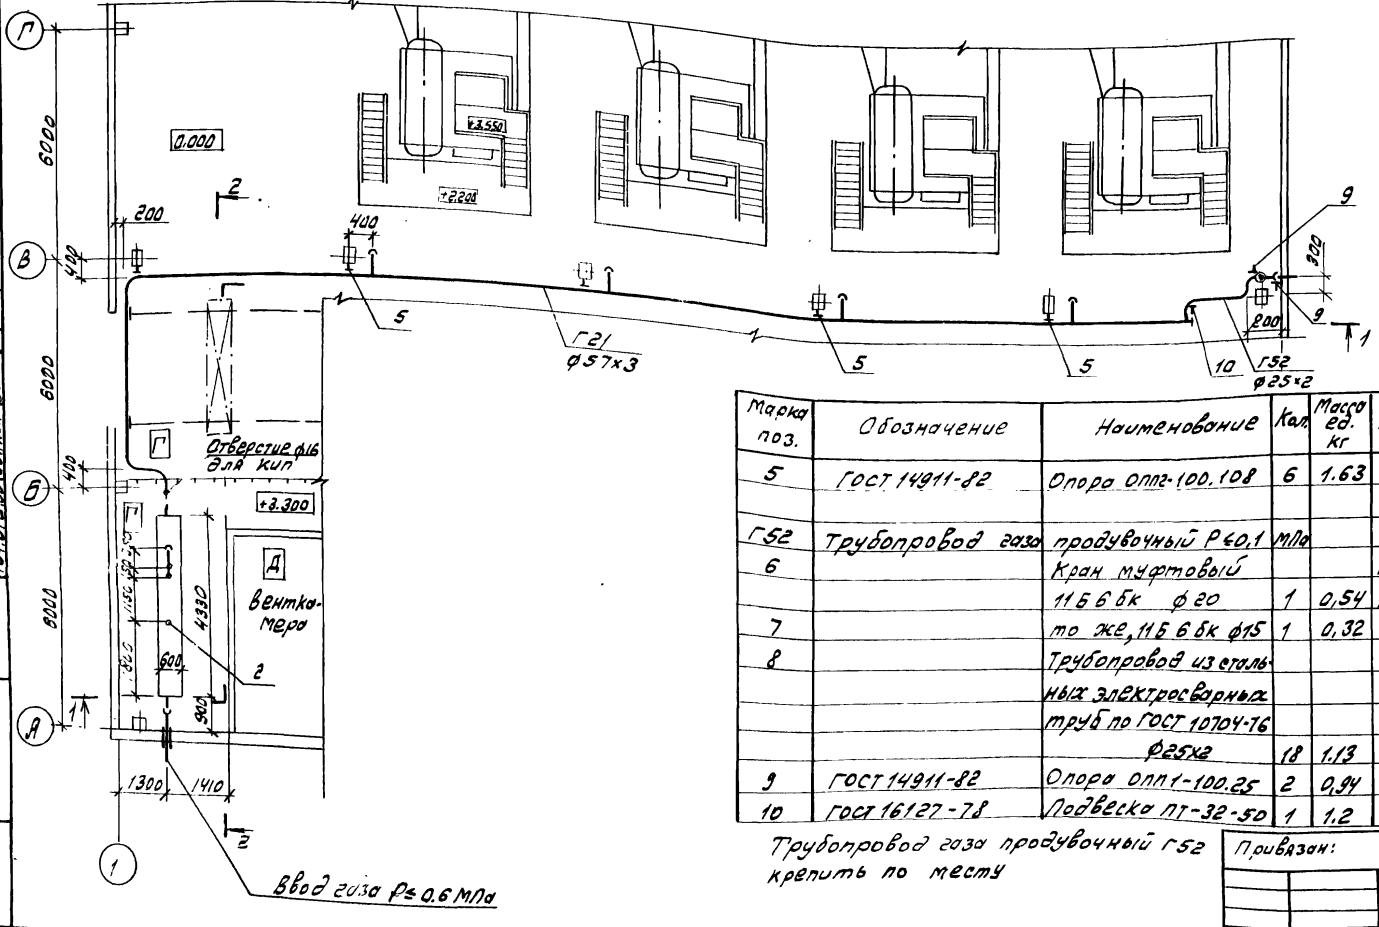 Г
6000
0.000
+3.550
+2.200
2
200
400
9
В
400
300
5
Г21
ф57×3
5
5
10
200
9
1
Г52
ф25×2
6000
Г
Отверстие ф16
для КИП
400
Б
+3.300
Г
Д
Вентка-
мера
250
150
1150
4330
6000
600
2
1800
900
1
А
1300
1410
2
1
Ввод газа Р≤0.6 МПа
Марка поз.
Обозначение
Наименование
Кол.
Масса ед. кг
5 ГОСТ 14911-82 Опора ОПП2-100.108 6 1.63
Г52 Трубопровод газа продувочный Р≤0,1 МПа
6 Кран муфтовый
11Б6бк ф20 1 0,54
7 то же, 11Б6бк ф15 1 0,32
8 Трубопровод из сталь-
ных электросварных
труб по ГОСТ 10704-76
ф25х2 18 1.13
9 ГОСТ 14911-82 Опора ОПП1-100.25 2 0,94
10 ГОСТ 16127-78 Подвеска ПТ-32-50 1 1.2
Трубопровод газа продувочный Г52
крепить по месту
Привязан: